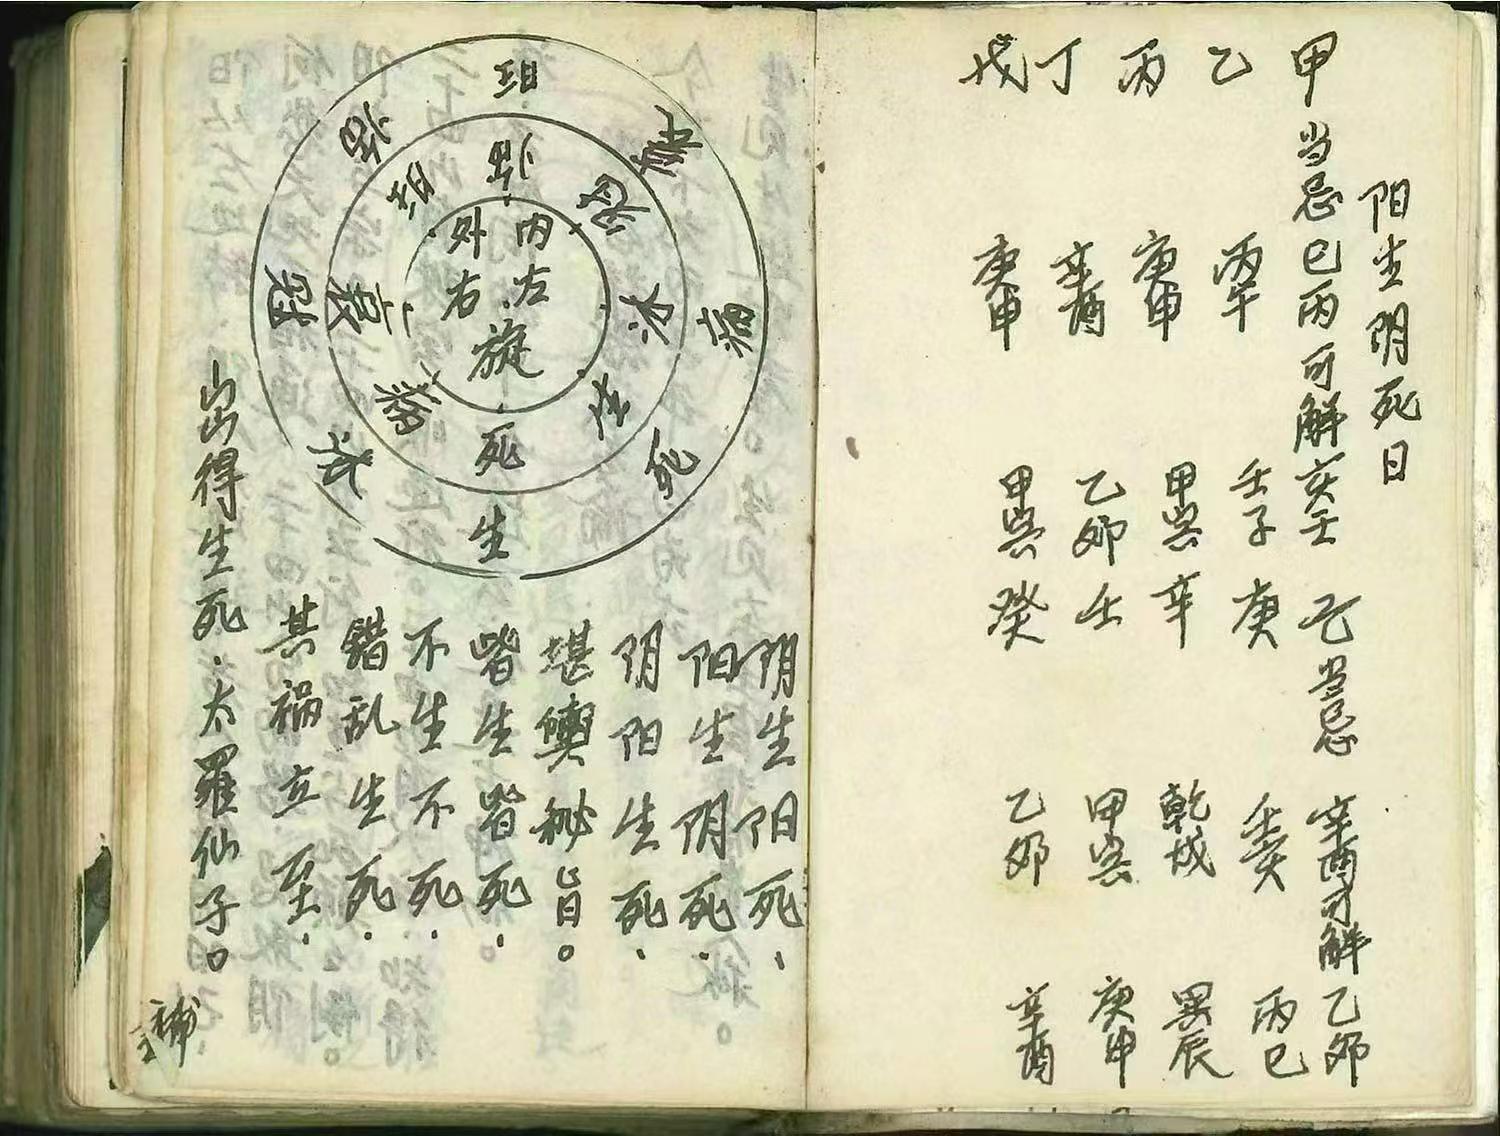 阳生阴死日
甲当忌巳丙可解亥壬乙当忌辛酉可解乙卯
乙丙午壬子庚壬亥丙巳
丙庚申甲寅辛乾戌巽辰
丁辛酉乙卯壬甲寅庚申
戊庚申甲寅癸乙卯辛酉
外内
右左
旋
临
冠
沐
生
死
衰
旺
临
冠
死
生
阴生阳死.
阳生阴死.
阴阳生死.
堪舆秘旨。
皆生皆死.
不生不死.
错乱生死.
其祸立至.
岀得生死.太罗仙子。
补